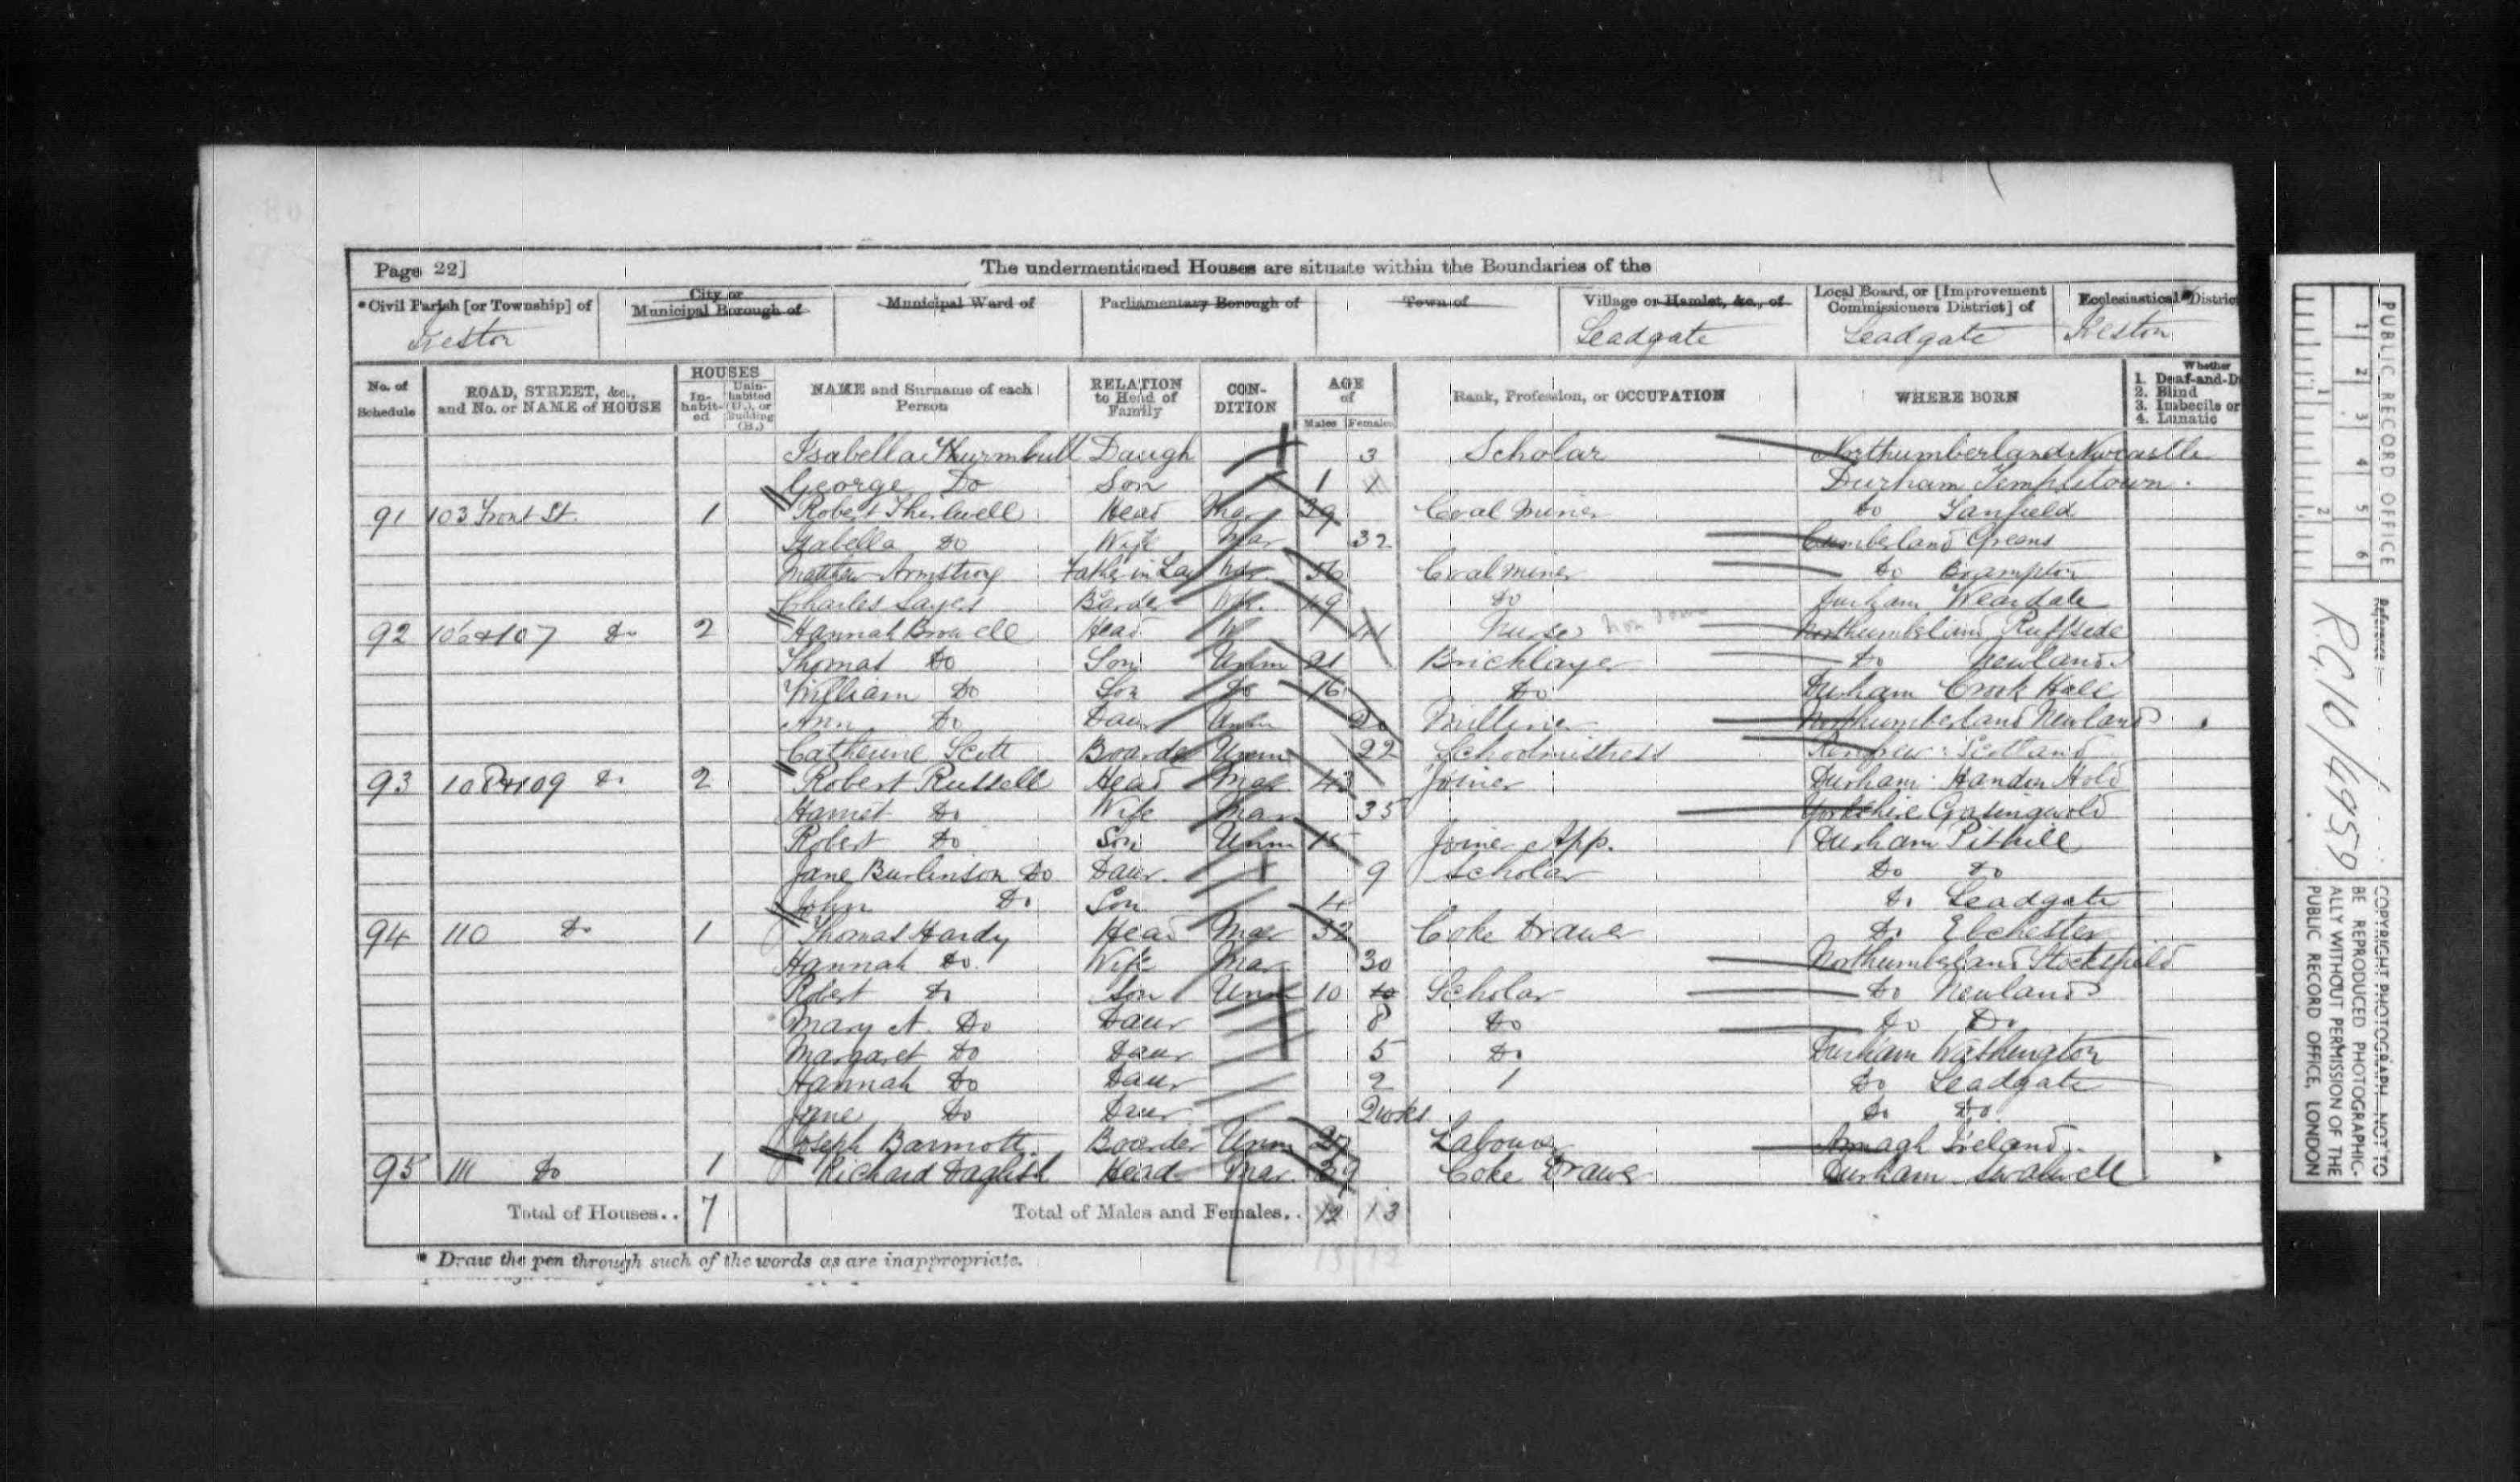 Page 22] The undermentioned Houses are situate within the Boundaries of the
*Civil Parish [or Township] of City or Municipal Borough of Municipal Ward of Parliamentary Borough of Town of Village or Hamlet, &c., of Local Board, or [Improvement Commissioners District] of Ecclesiastical District
Leadgate Leadgate
No. of Schedule ROAD, STREET, &c., and No. or NAME of HOUSE HOUSES Inhabited Uninhabited (U.), or Building (B.) NAME and Surname of each Person RELATION to Head of Family CONDITION AGE of Males Females Rank, Profession, or OCCUPATION WHERE BORN Whether
1. Deaf-and-D
2. Blind
3. Imbecile or
4. Lunatic
Isabella Daugh 3 Scholar Northumberland Newcastle
George Do Son 1 Durham Templetown
91 103 Front St. 1 Robert Head Mar 39 Coal Miner Do Tanfield
Isabella Do Wife Mar 32 Cumberland Greens
Matthew Armstrong Father in Law 56 Coal Miner Do Brampton
Charles Boarder 49 Do Durham Weardale
92 106 & 107 Do 2 Hannah Head W 41 Nurse Northumberland Ruffside
Thomas Do Son Unm 21 Bricklayer Do Newlands
William Do Son Do 16 Do Durham Crook Hall
Ann Do Daur Unm 20 Milliner Northumberland Newlands
Catherine Scott Boarder Unm 22 Schoolmistress Renfrew Scotland
93 108 & 109 Do 2 Robert Russell Head Mar 43 Joiner Durham Handon Hold
Harriet Do Wife Mar 35 Yorkshire
Robert Do Son Unm 15 Joiner App. Durham Pithill
Jane Burlinson Do Daur. 9 Scholar Do Do
John Do Son 4 Do Leadgate
94 110 Do 1 Thomas Hardy Head Mar 32 Coke Drawer Do Ebchester
Hannah Do Wife Mar 30 Northumberland Stocksfield
Robert Do Son Unm 10 Scholar Do Newlands
Mary A. Do Daur 8 Do Do Do
Margaret Do Daur 5 Do Durham Washington
Hannah Do Daur 2 Do Leadgate
Jane Do Daur 2 wks Do Do
Joseph Boarder Unm 27 Labourer Armagh Ireland
95 111 Do 1 Richard Daglish Head Mar 29 Coke Drawer Durham Swalwell
Total of Houses.. 7 Total of Males and Females.. 12 13
* Draw the pen through such of the words as are inappropriate.
PUBLIC RECORD OFFICE
1 2 3 4 5 6
1 2
Reference :—
R.G. 10/4959
COPYRIGHT PHOTOGRAPH—NOT TO
BE REPRODUCED PHOTOGRAPHIC-
ALLY WITHOUT PERMISSION OF THE
PUBLIC RECORD OFFICE, LONDON